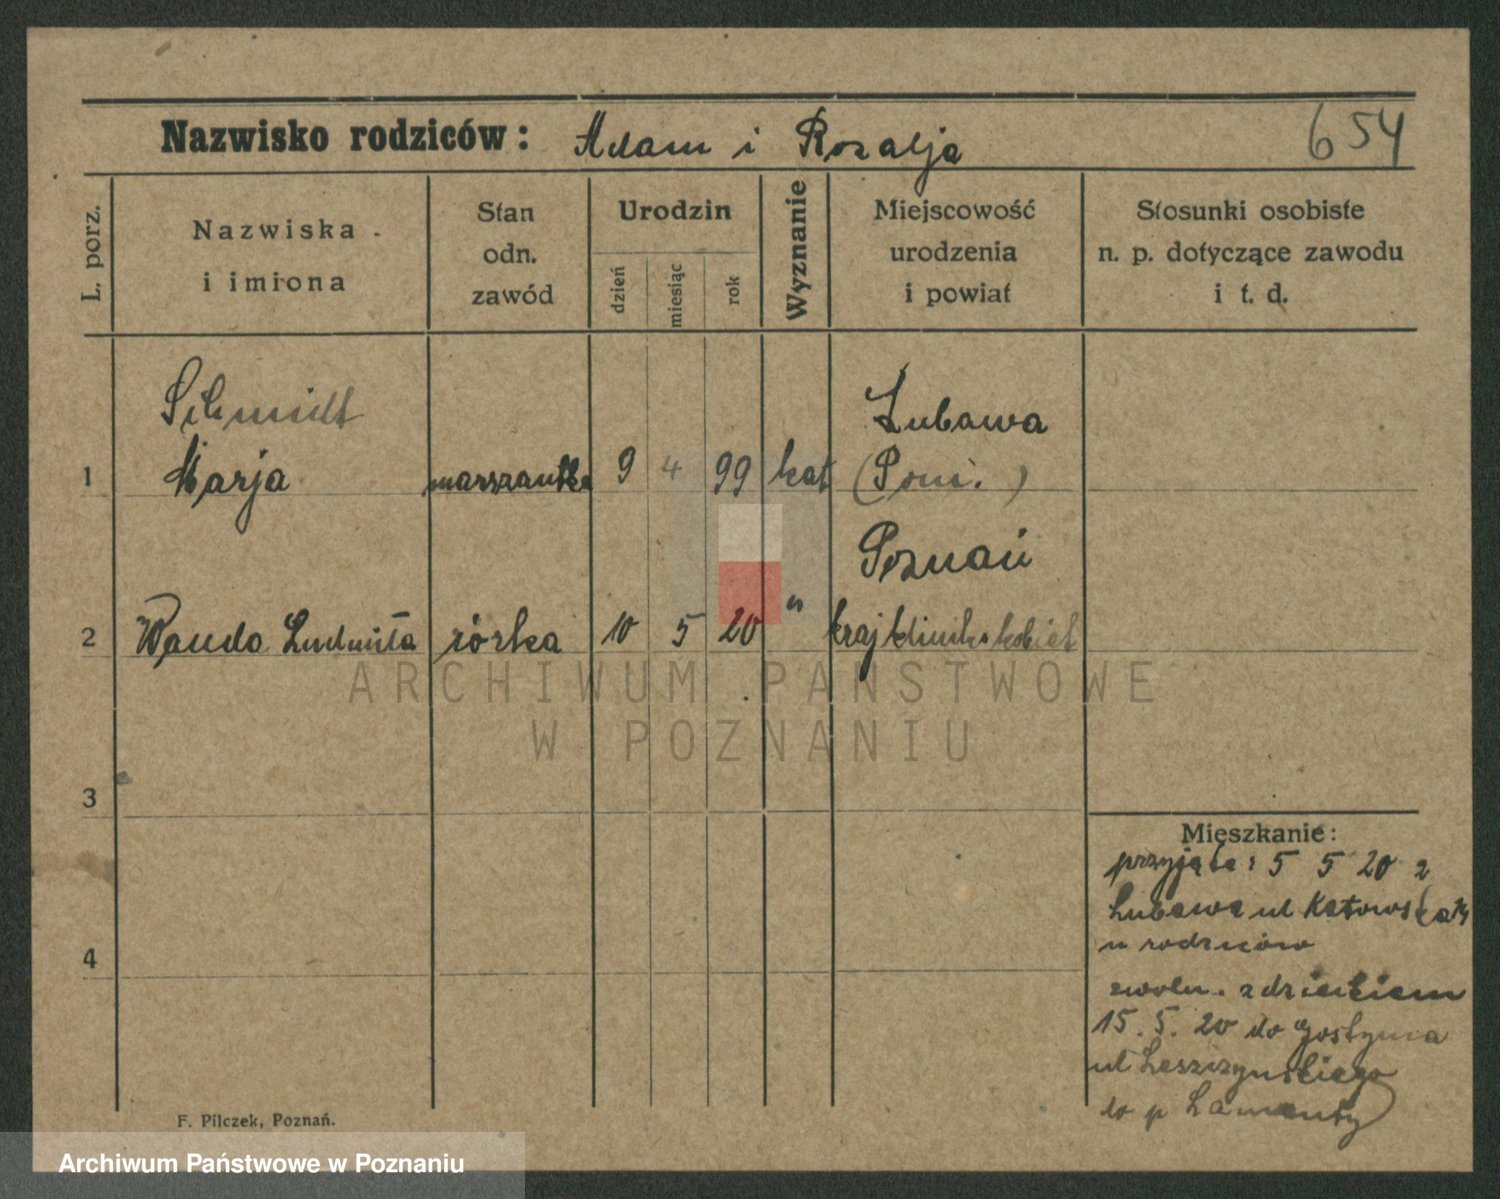 Nazwisko rodziców: Adam i Rozalja 654
L. porz.
Nazwiska i imiona
Stan odn. zawód
Urodzin
dzień
miesiąc
rok
Wyznanie
Miejscowość urodzenia i powiat
Stosunki osobiste n. p. dotyczące zawodu i t. d.
Schmidt Lubawa
1 Marja 9 4 99 kat (Pom.)
Poznań
2 Wanda Ludmiła córka 10 5 20 " kraj klinika kobiet
3
4
Mieszkanie:
przyjęta: 5 5 20 z
Lubawa ul
u rodziców
zwoln. z dzieckiem
15. 5. 20 do Gostynia
ul Leszczyńskiego
do p Lamenty
F. Pilczek, Poznań.
ARCHIWUM PAŃSTWOWE
W POZNANIU
Archiwum Państwowe w Poznaniu